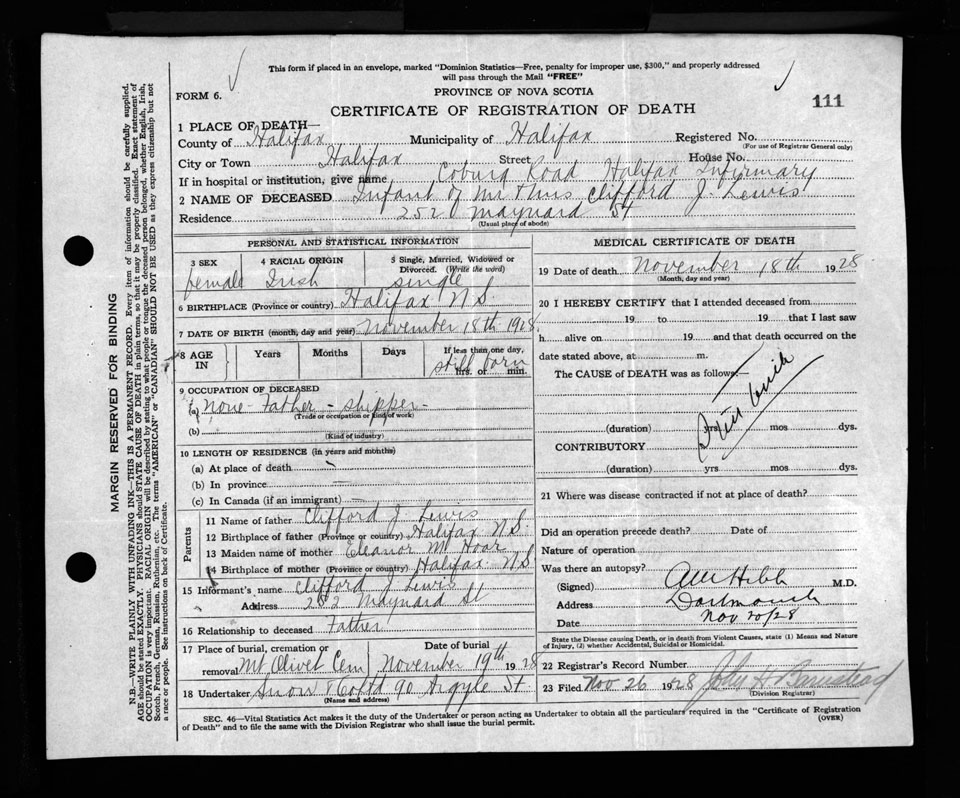 This form if placed in an envelope, marked "Dominion Statistics—Free, penalty for improper use, $300," and properly addressed
will pass through the Mail "FREE"
FORM 6.
PROVINCE OF NOVA SCOTIA
111
CERTIFICATE OF REGISTRATION OF DEATH
1 PLACE OF DEATH—
County of Halifax Municipality of Halifax Registered No.
(For use of Registrar General only)
City or Town Halifax Street House No.
If in hospital or institution, give name Coburg Road Halifax Infirmary
2 NAME OF DECEASED Infant of Mr & Mrs Clifford J. Lewis
Residence 252 Maynard St
(Usual place of abode)
PERSONAL AND STATISTICAL INFORMATION
3 SEX female
4 RACIAL ORIGIN Irish
5 Single, Married, Widowed or Divorced. (Write the word) single
6 BIRTHPLACE (Province or country) Halifax N.S.
7 DATE OF BIRTH (month, day and year) November 18th 1928.
8 AGE IN Years Months Days If less than one day, hrs. or min. still born
9 OCCUPATION OF DECEASED
(a) None - Father - shipper -
(Trade or occupation or kind of work)
(b)
(Kind of industry)
10 LENGTH OF RESIDENCE (in years and months)
(a) At place of death —
(b) In province —
(c) In Canada (if an immigrant) —
Parents
11 Name of father Clifford J. Lewis
12 Birthplace of father (Province or country) Halifax N.S.
13 Maiden name of mother Eleanor M. Hoar
14 Birthplace of mother (Province or country) Halifax N.S.
15 Informant's name Clifford J. Lewis
Address 252 Maynard St
16 Relationship to deceased Father
17 Place of burial, cremation or removal Mt Olivet Cem Date of burial November 19th 1928
18 Undertaker Snow & Co Ltd 90 Argyle St
(Name and address)
MEDICAL CERTIFICATE OF DEATH
19 Date of death November 18th 1928
(Month, day and year)
20 I HEREBY CERTIFY that I attended deceased from
19 to 19 that I last saw
h alive on 19 and that death occurred on the
date stated above, at m.
The CAUSE of DEATH was as follows:—
Still birth
(duration) yrs mos dys.
CONTRIBUTORY
(duration) yrs mos dys.
21 Where was disease contracted if not at place of death?
Did an operation precede death? Date of
Nature of operation
Was there an autopsy?
(Signed) M.D.
Address Dartmouth
Date Nov 20/28
State the Disease causing Death, or in death from Violent Causes, state (1) Means and Nature
of Injury, (2) whether Accidental, Suicidal or Homicidal.
22 Registrar's Record Number
23 Filed Nov 26 1928 John H Barnstead
(Division Registrar)
SEC. 46—Vital Statistics Act makes it the duty of the Undertaker or person acting as Undertaker to obtain all the particulars required in the "Certificate of Registration
of Death" and to file the same with the Division Registrar who shall issue the burial permit.
(OVER)
MARGIN RESERVED FOR BINDING
N.B.—WRITE PLAINLY WITH UNFADING INK—THIS IS A PERMANENT RECORD. Every item of information should be carefully supplied.
AGE should be stated EXACTLY. PHYSICIANS should STATE CAUSE OF DEATH in plain terms, so that it may be properly classified. Exact statement of
OCCUPATION is very important. RACIAL ORIGIN will be described by stating to what people or tongue the deceased person belonged, whether English, Irish,
Scotch, French, German, Russian, Ruthenian, etc. The terms "AMERICAN" or "CANADIAN" SHOULD NOT BE USED as they express citizenship but not
a race or people. See instructions on back of Certificate.